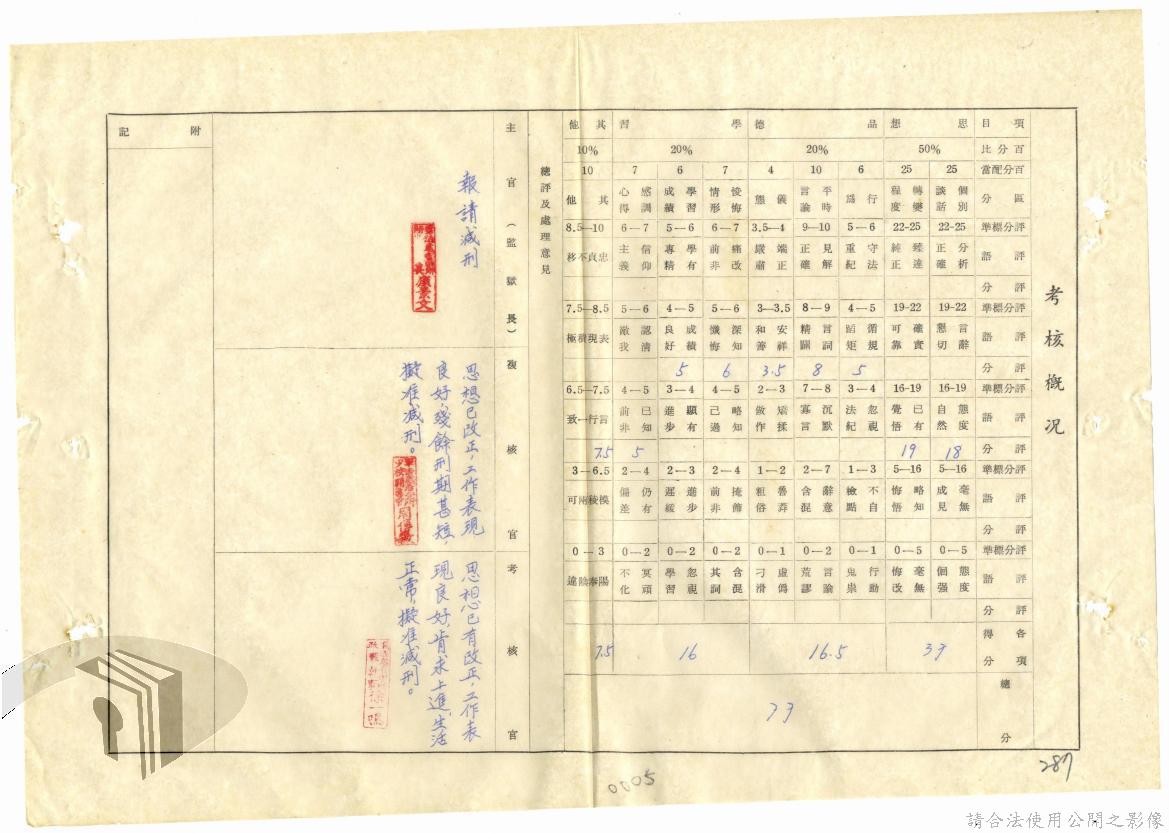 考核概況
項目 思想 品德 學習 其他
百分比 50% 20% 20% 10%
百分配當 25 25 6 10 4 7 6 7 10
區分 個別談話 轉變程度 行爲 平時言論 儀態 悛悔情形 學習成績 感調心得 其他
評分標準 22-25 22-25 5—6 9—10 3.5—4 6—7 5—6 6—7 8.5—10
評語 分析正確 臻達純正 守法重紀 見解正確 端正嚴肅 痛改前非 學有專精 信仰主義 忠貞不移
評分
評分標準 19-22 19-22 4—5 8—9 3—3.5 5—6 4—5 5—6 7.5—8.5
評語 言辭懇切 確實可靠 循規蹈矩 言詞精闢 安祥和善 深知懺悔 成績良好 認清敵我 表現積極
評分 5 8 3.5 6 5
評分標準 16-19 16-19 3—4 7—8 2—3 4—5 3—4 4—5 6.5—7.5
評語 態度自然 已有覺悟 忽視法紀 沉默寡言 矯揉做作 略知己過 顯有進步 已知前非 言行一致
評分 18 19 5 7.5
評分標準 5—16 5—16 1—3 2—7 1—2 2—4 2—3 2—4 3—6.5
評語 毫無成見 略知悔悟 不自檢點 辭意含混 魯莽粗俗 掩飾前非 進步遲緩 仍有偏差 模稜兩可
評分
評分標準 0—5 0—5 0—1 0—2 0—1 0—2 0—2 0—2 0—3
評語 態度倔强 毫無悔改 行動鬼祟 言論荒謬 虛僞刁滑 含混其詞 忽視學習 冥頑不化 陽奉陰違
評分
各項得分 37 16.5 16 7.5
總分 77
總評及處理意見
主官(監獄長)
報請減刑
複核官
思想已改正,工作表現
良好,殘餘刑期甚短,
擬准減刑。
考核官
思想已有改正,工作表
現良好,肯求上進,生活
正常,擬准減刑。
附記
287
0005
請合法使用公開之影像